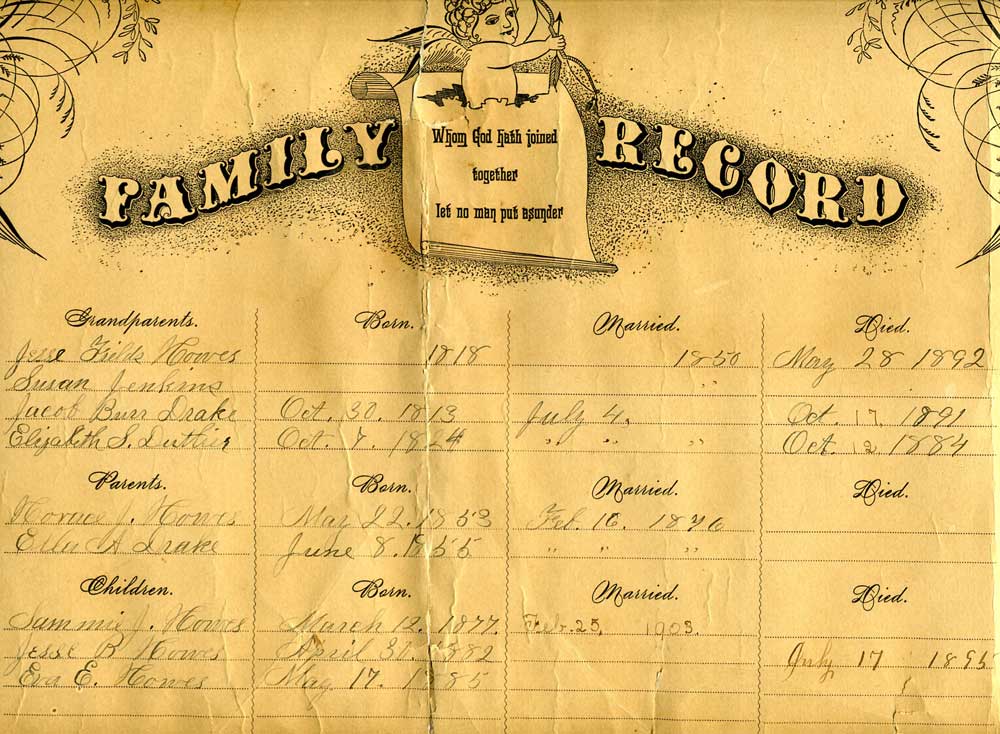 FAMILY RECORD
Whom God hath joined
together
let no man put asunder
Grandparents. Born. Married. Died.
Jesse Fields Howes 1818 1850 May 28 1892
Susan Jenkins " "
Jacob Burr Drake Oct. 30. 1813 July 4, Oct. 17, 1891
Elizabeth S. Oct. 7. 1824 " " " Oct. 12 1884
Parents. Born. Married. Died.
Horace J. Howes May 22. 1853 Feb. 16. 1876
Ella A Drake June 8. 1855 " " "
Children. Born. Married. Died.
Sammie J. Howes March 12. 1877. Feb. 25, 1903.
Jesse B Howes April 30. 1882 July 17
Eva E. Howes May 17. 1885